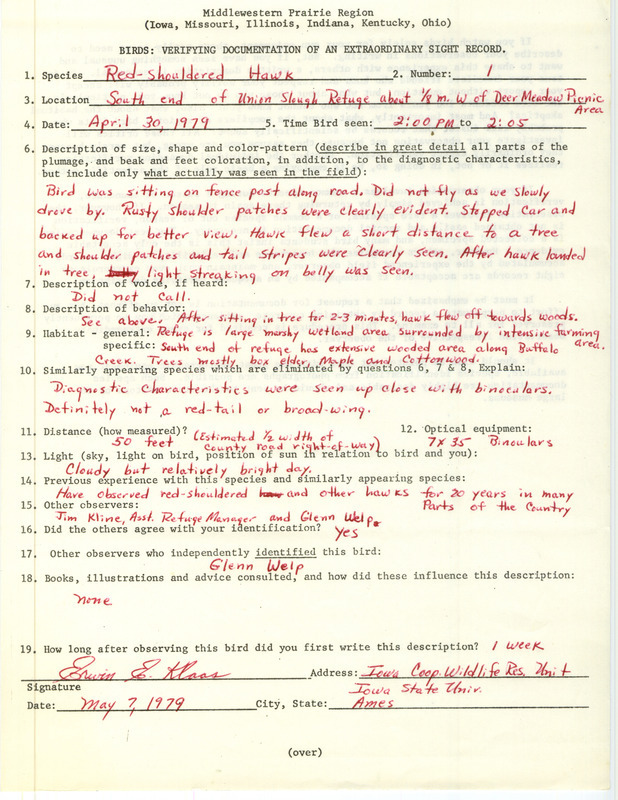 Middlewestern Prairie Region
(Iowa, Missouri, Illinois, Indiana, Kentucky, Ohio)
BIRDS: VERIFYING DOCUMENTATION OF AN EXTRAORDINARY SIGHT RECORD.
1. Species Red-shouldered Hawk 2. Number: 1
3. Location South end of Union Slough Refuge about 1/8 m. W of Deer Meadow Picnic
Area
4. Date: April 30, 1979 5. Time Bird seen: 2:00 PM to 2:05
6. Description of size, shape and color-pattern (describe in great detail all parts of the
plumage, and beak and feet coloration, in addition, to the diagnostic characteristics,
but include only what actually was seen in the field):
Bird was sitting on fence post along road. Did not fly as we slowly
drove by. Rusty shoulder patches were clearly evident. Stopped car and
backed up for better view. Hawk flew a short distance to a tree
and shoulder patches and tail stripes were clearly seen. After hawk landed
in tree, light streaking on belly was seen.
7. Description of voice, if heard:
Did not call.
8. Description of behavior:
See above. After sitting in tree for 2-3 minutes, hawk flew off towards woods.
9. Habitat - general: Refuge is large marshy wetland area surrounded by intensive farming
area.
specific: South end of refuge has extensive wooded area along Buffalo
Creek. Trees mostly box elder, Maple and Cottonwood.
10. Similarly appearing species which are eliminated by questions 6, 7 & 8, Explain:
Diagnostic Characteristics were seen up close with binoculars.
Definitely not a red-tail or broad-wing.
11. Distance (how measured)? (Estimated 1/2 width of 12. Optical equipment:
50 feet county road right-of-way) 7x35 Binoculars
13. Light (sky, light on bird, position of sun in relation to bird and you):
Cloudy but relatively bright day.
14. Previous experience with this species and similarly appearing species:
Have observed red-shouldered and other hawks for 20 years in many
Parts of the Country
15. Other observers:
Jim Kline, Asst. Refuge Manager and Glenn Welp.
16. Did the others agree with your identification? Yes
17. Other observers who independently identified this bird:
Glenn Welp
18. Books, illustrations and advice consulted, and how did these influence this description:
none
19. How long after observing this bird did you first write this description? 1 week
Erwin E. Klaas Address: Iowa Coop. Wildlife Res. Unit
Signature Iowa State Univ.
Date: May 7, 1979 City, State: Ames
(over)